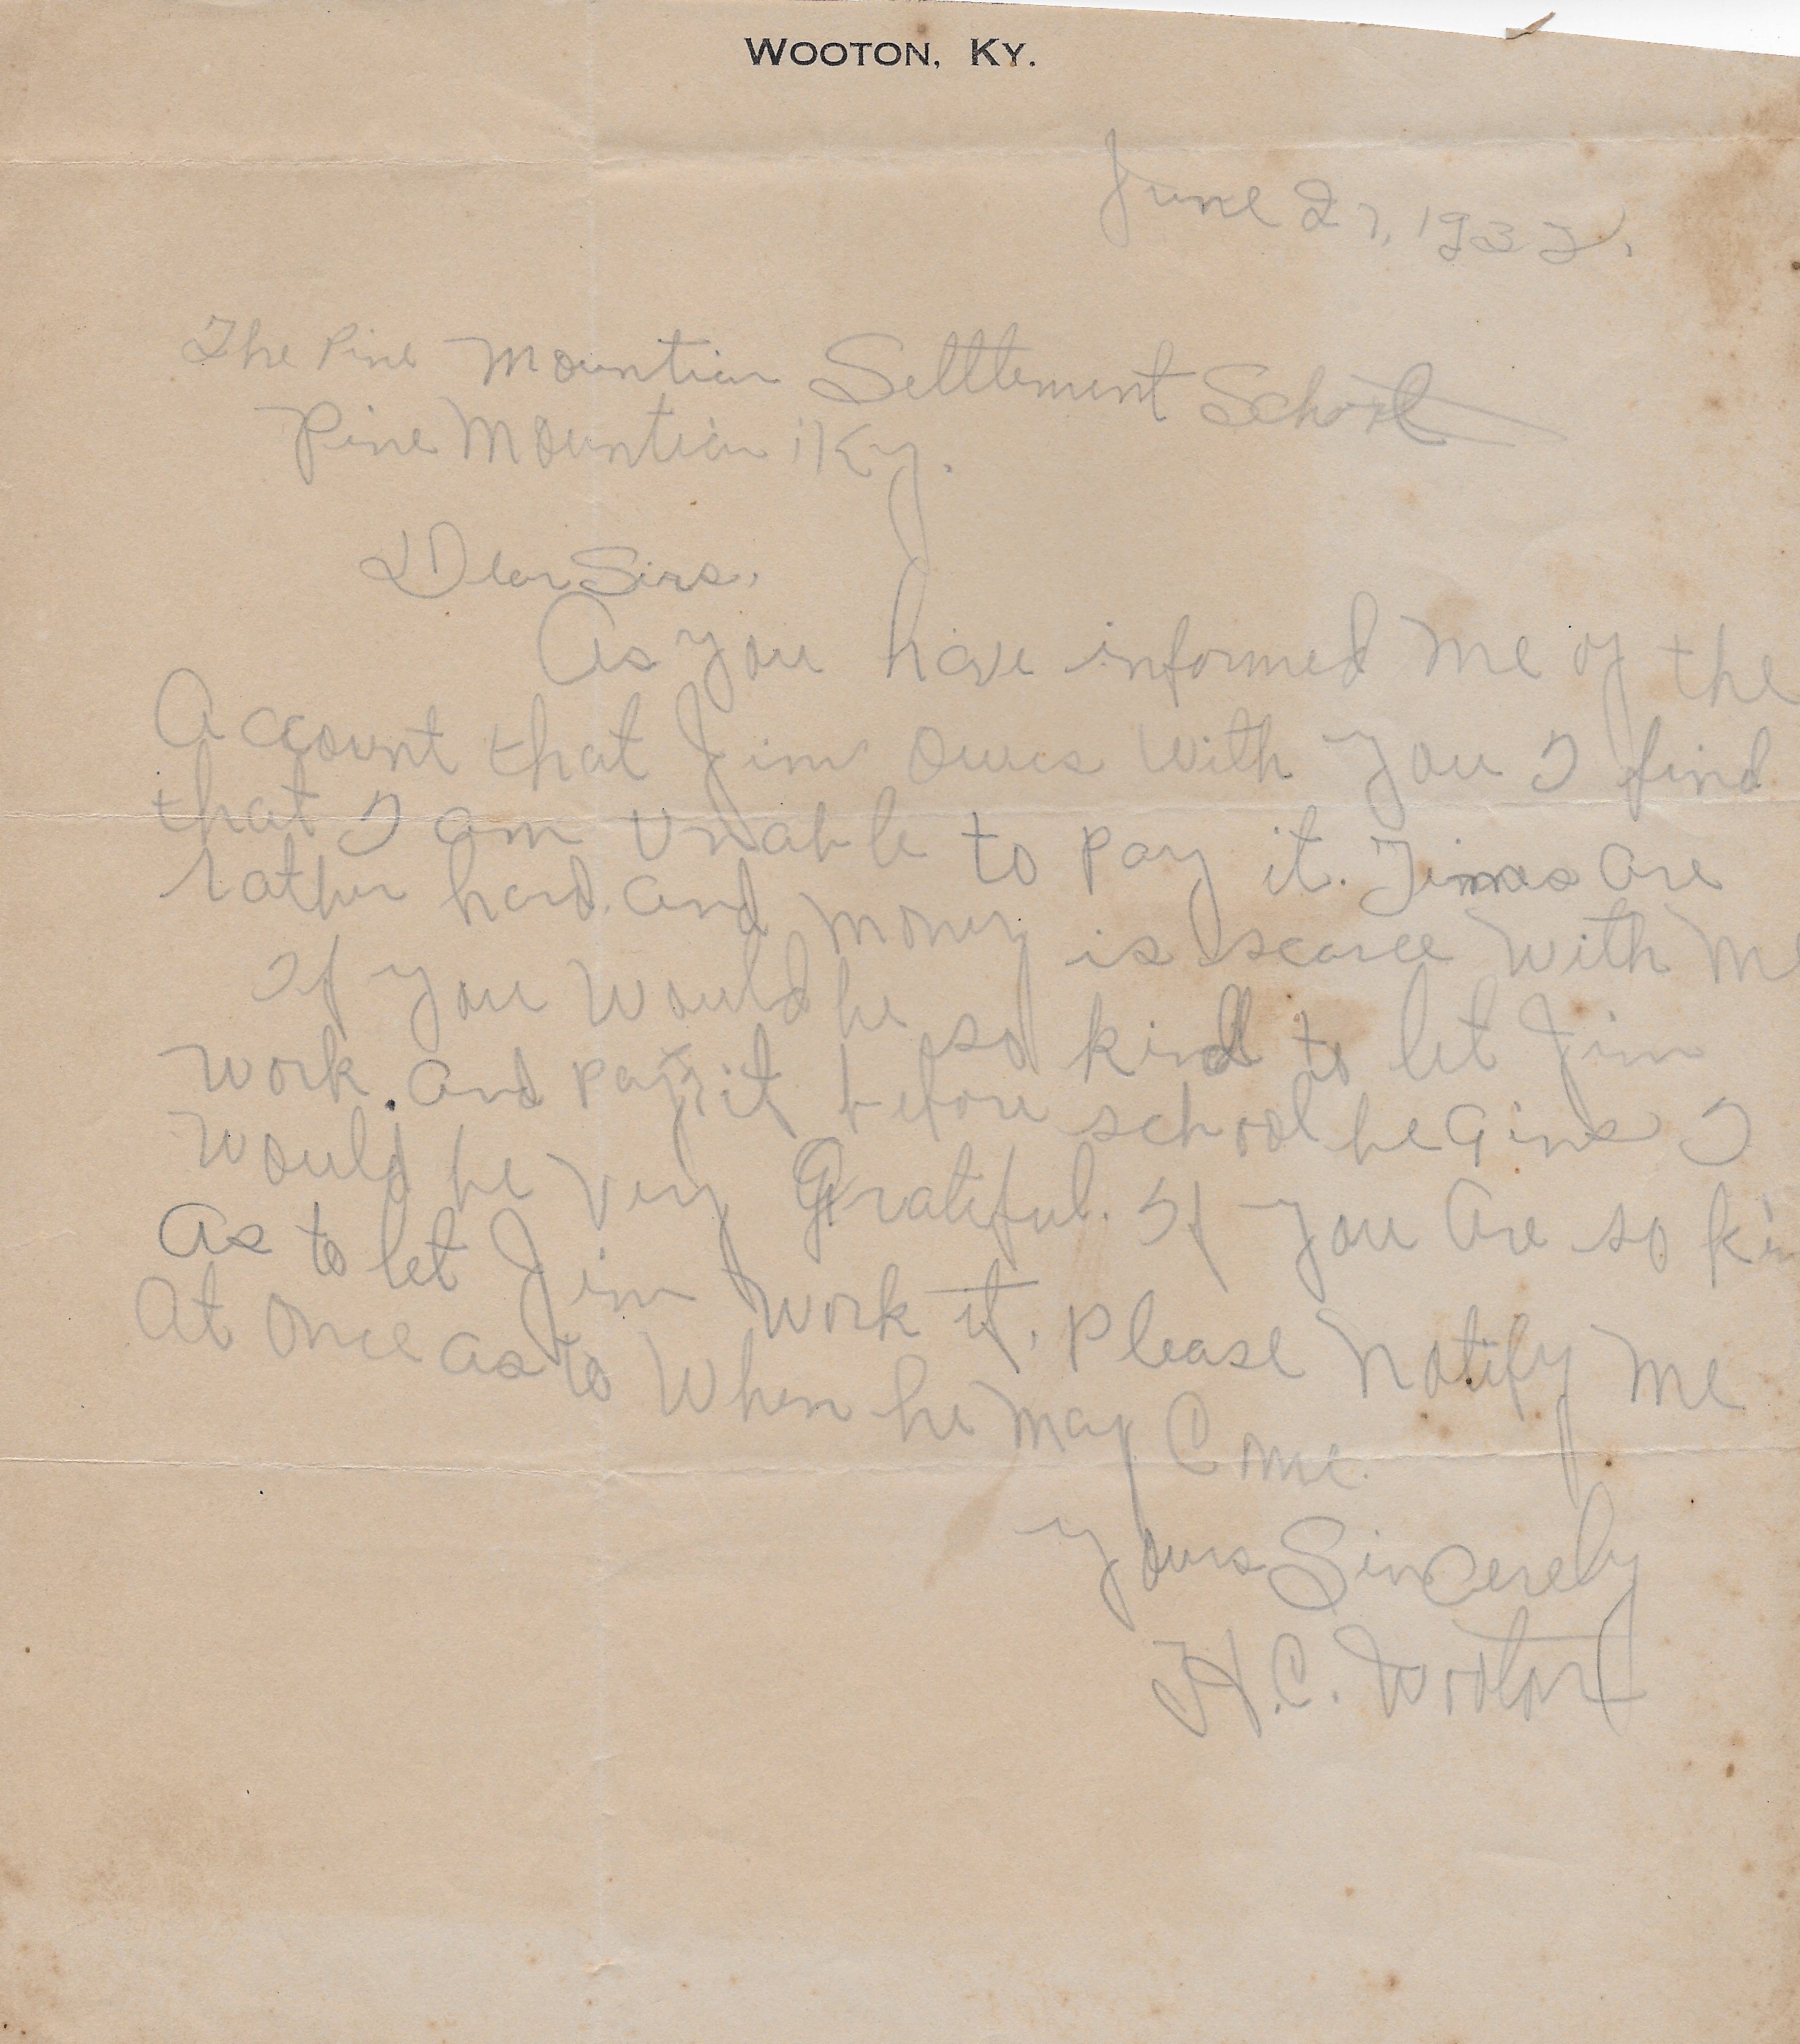 WOOTON, KY.
June 27, 1932.
The Pine Mountian Settlement School
Pine Mountian, Ky.
Dear Sirs,
As you have informed me of the
Account that Jim owes with you I find
that I am unable to pay it. Times are
rather hard. and money is scarce with me
If you would be so kind to let Jim
work. and pay it before school begins I
would be very Grateful. If you are so kin
as to let Jim work it, please notify me
at once as to when he may Come.
Yours Sincerely
H.C. Wooton